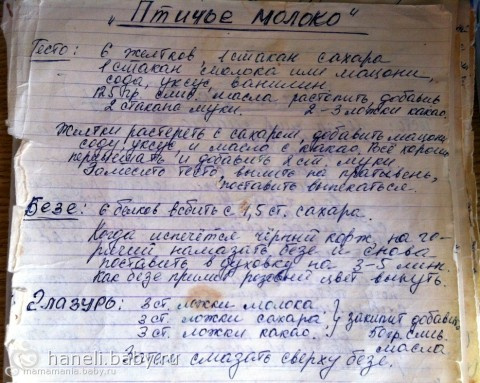 „Птичье молоко"
Тесто: 6 желтков, 1 стакан сахара
1 стакан молока или мацони,
сода, уксус, ванилин.
гр. слив. масла растопить, добавить
2 стакана муки. 2-3 ложки какао.
Желтки растереть с сахаром, добавить мацони
соду, уксус и масло с какао. Всё хорошо
перемешать и добавить 2 ст муки
Замесить тесто, вылить на протывень,
поставить выпекаться.
Безе: 6 белков взбить с 1,5 ст. сахара.
Когда испечётся чёрный корж, на го-
рячий намазать безе и снова
поставить в духовку на 3-5 мин.
Как безе примет розовый цвет вынуть.
Глазурь: 3 ст. ложки молока
3 ст. ложки сахара } закипит добавить
3 ст. ложки какао. 50 гр. слив.
масла
Затем смазать сверху безе.
haneli.baby.ru
mamamania.baby.ru